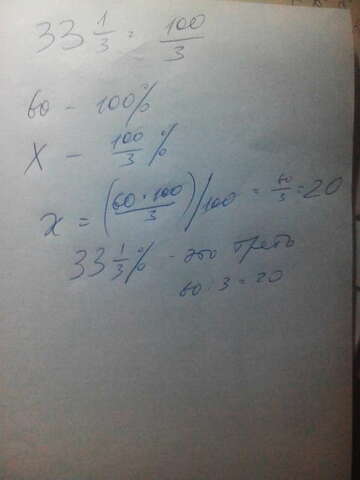 33 1/3 = 100/3
60 - 100%
X - 100/3 %
x = (60·100/3)/100 = 60/3 = 20
33 1/3 % - это треть
60 : 3 = 20